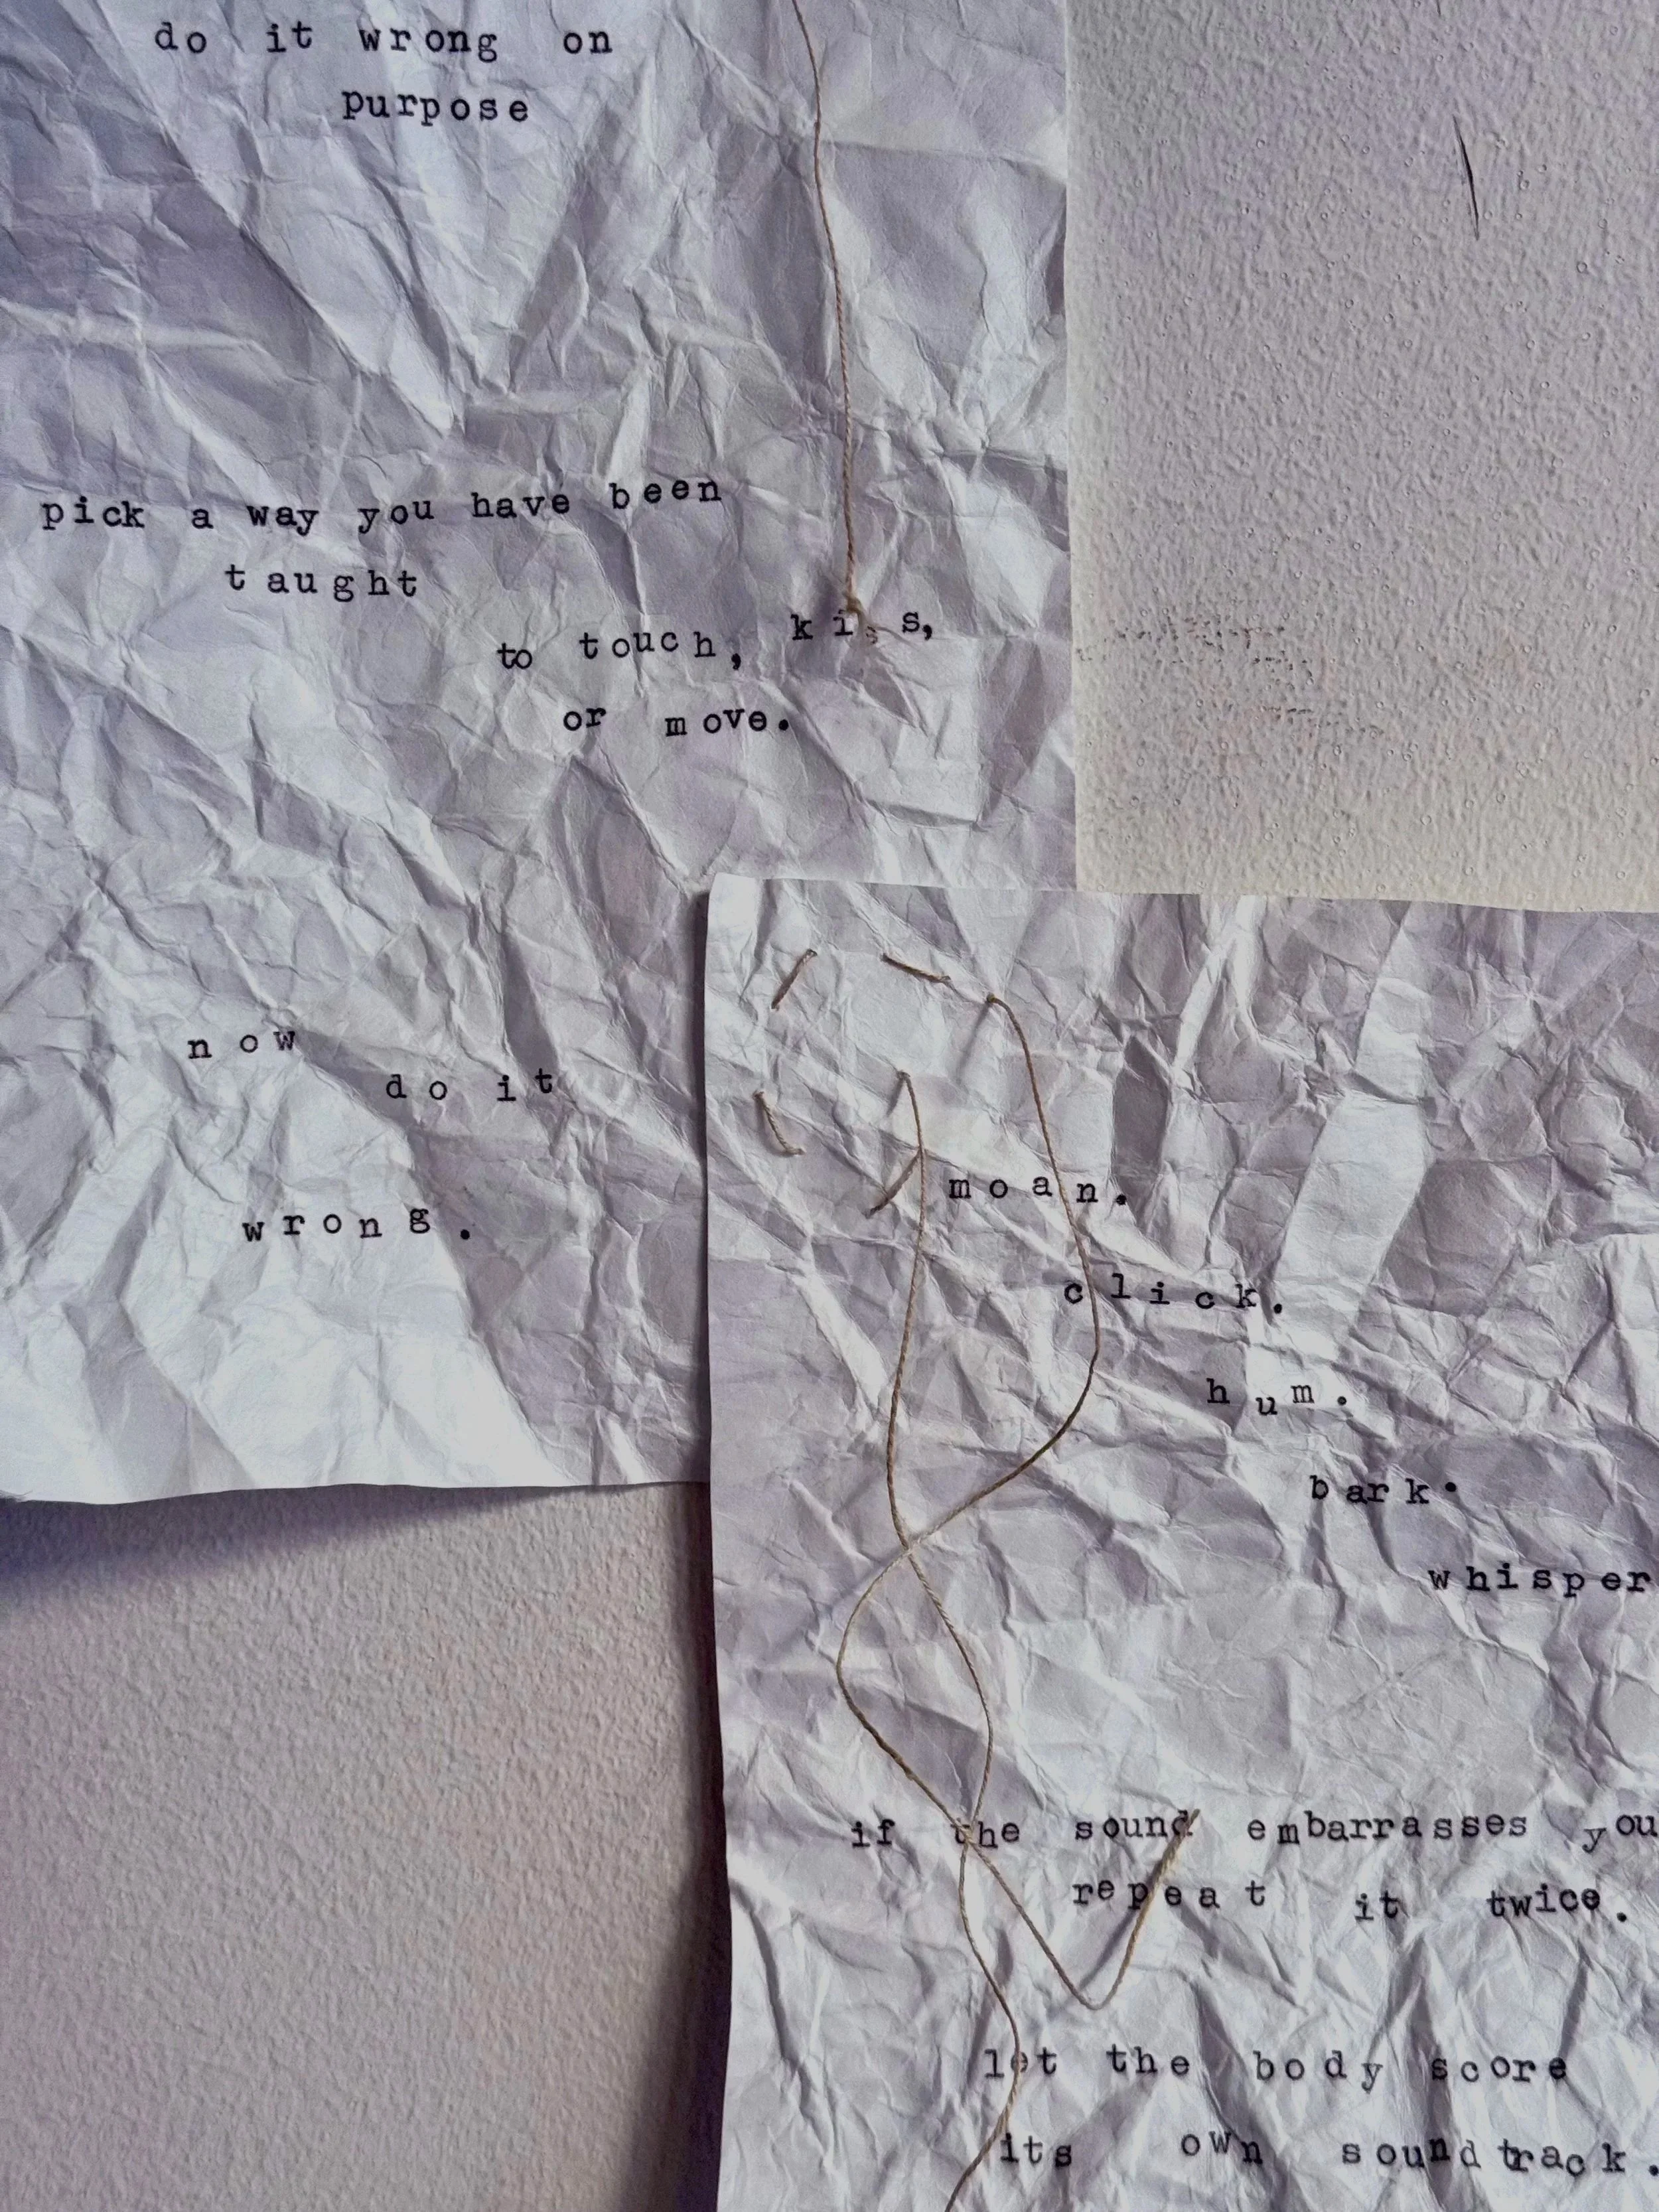 do it wrong on
purpose
pick a way you have been
taught
to touch, kiss,
or move.
now
do it
wrong.
moan.
click.
hum.
bark.
whisper
if the sound embarrasses you
repeat it twice.
let the body score
its own soundtrack.